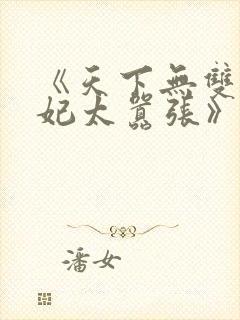 《天下無雙
妃太囂張》
潘女